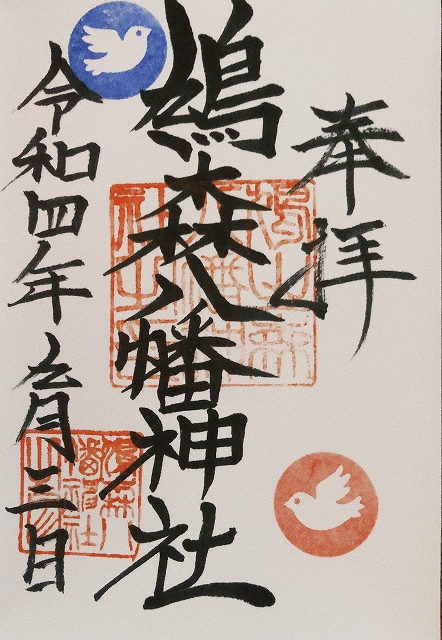 奉拝
鳩森八幡神社
令和四年五月三日